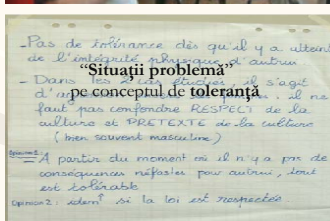 - Pas de tolérance dès qu'il y a atteinte
de l'intégrité physique d'autrui
"Situații problemă"
- Dans les 2 cas étudiés, il s'agit
pe conceptul de toleranță
il ne
faut pas confondre RESPECT de la
culture et PRETEXTE de la culture
(bien souvent masculine)
Opinion 1:
A partir du moment où il n'y a pas de
conséquences néfastes pour autrui, tout
est tolérable
Opinion 2: idem si la loi est respectée